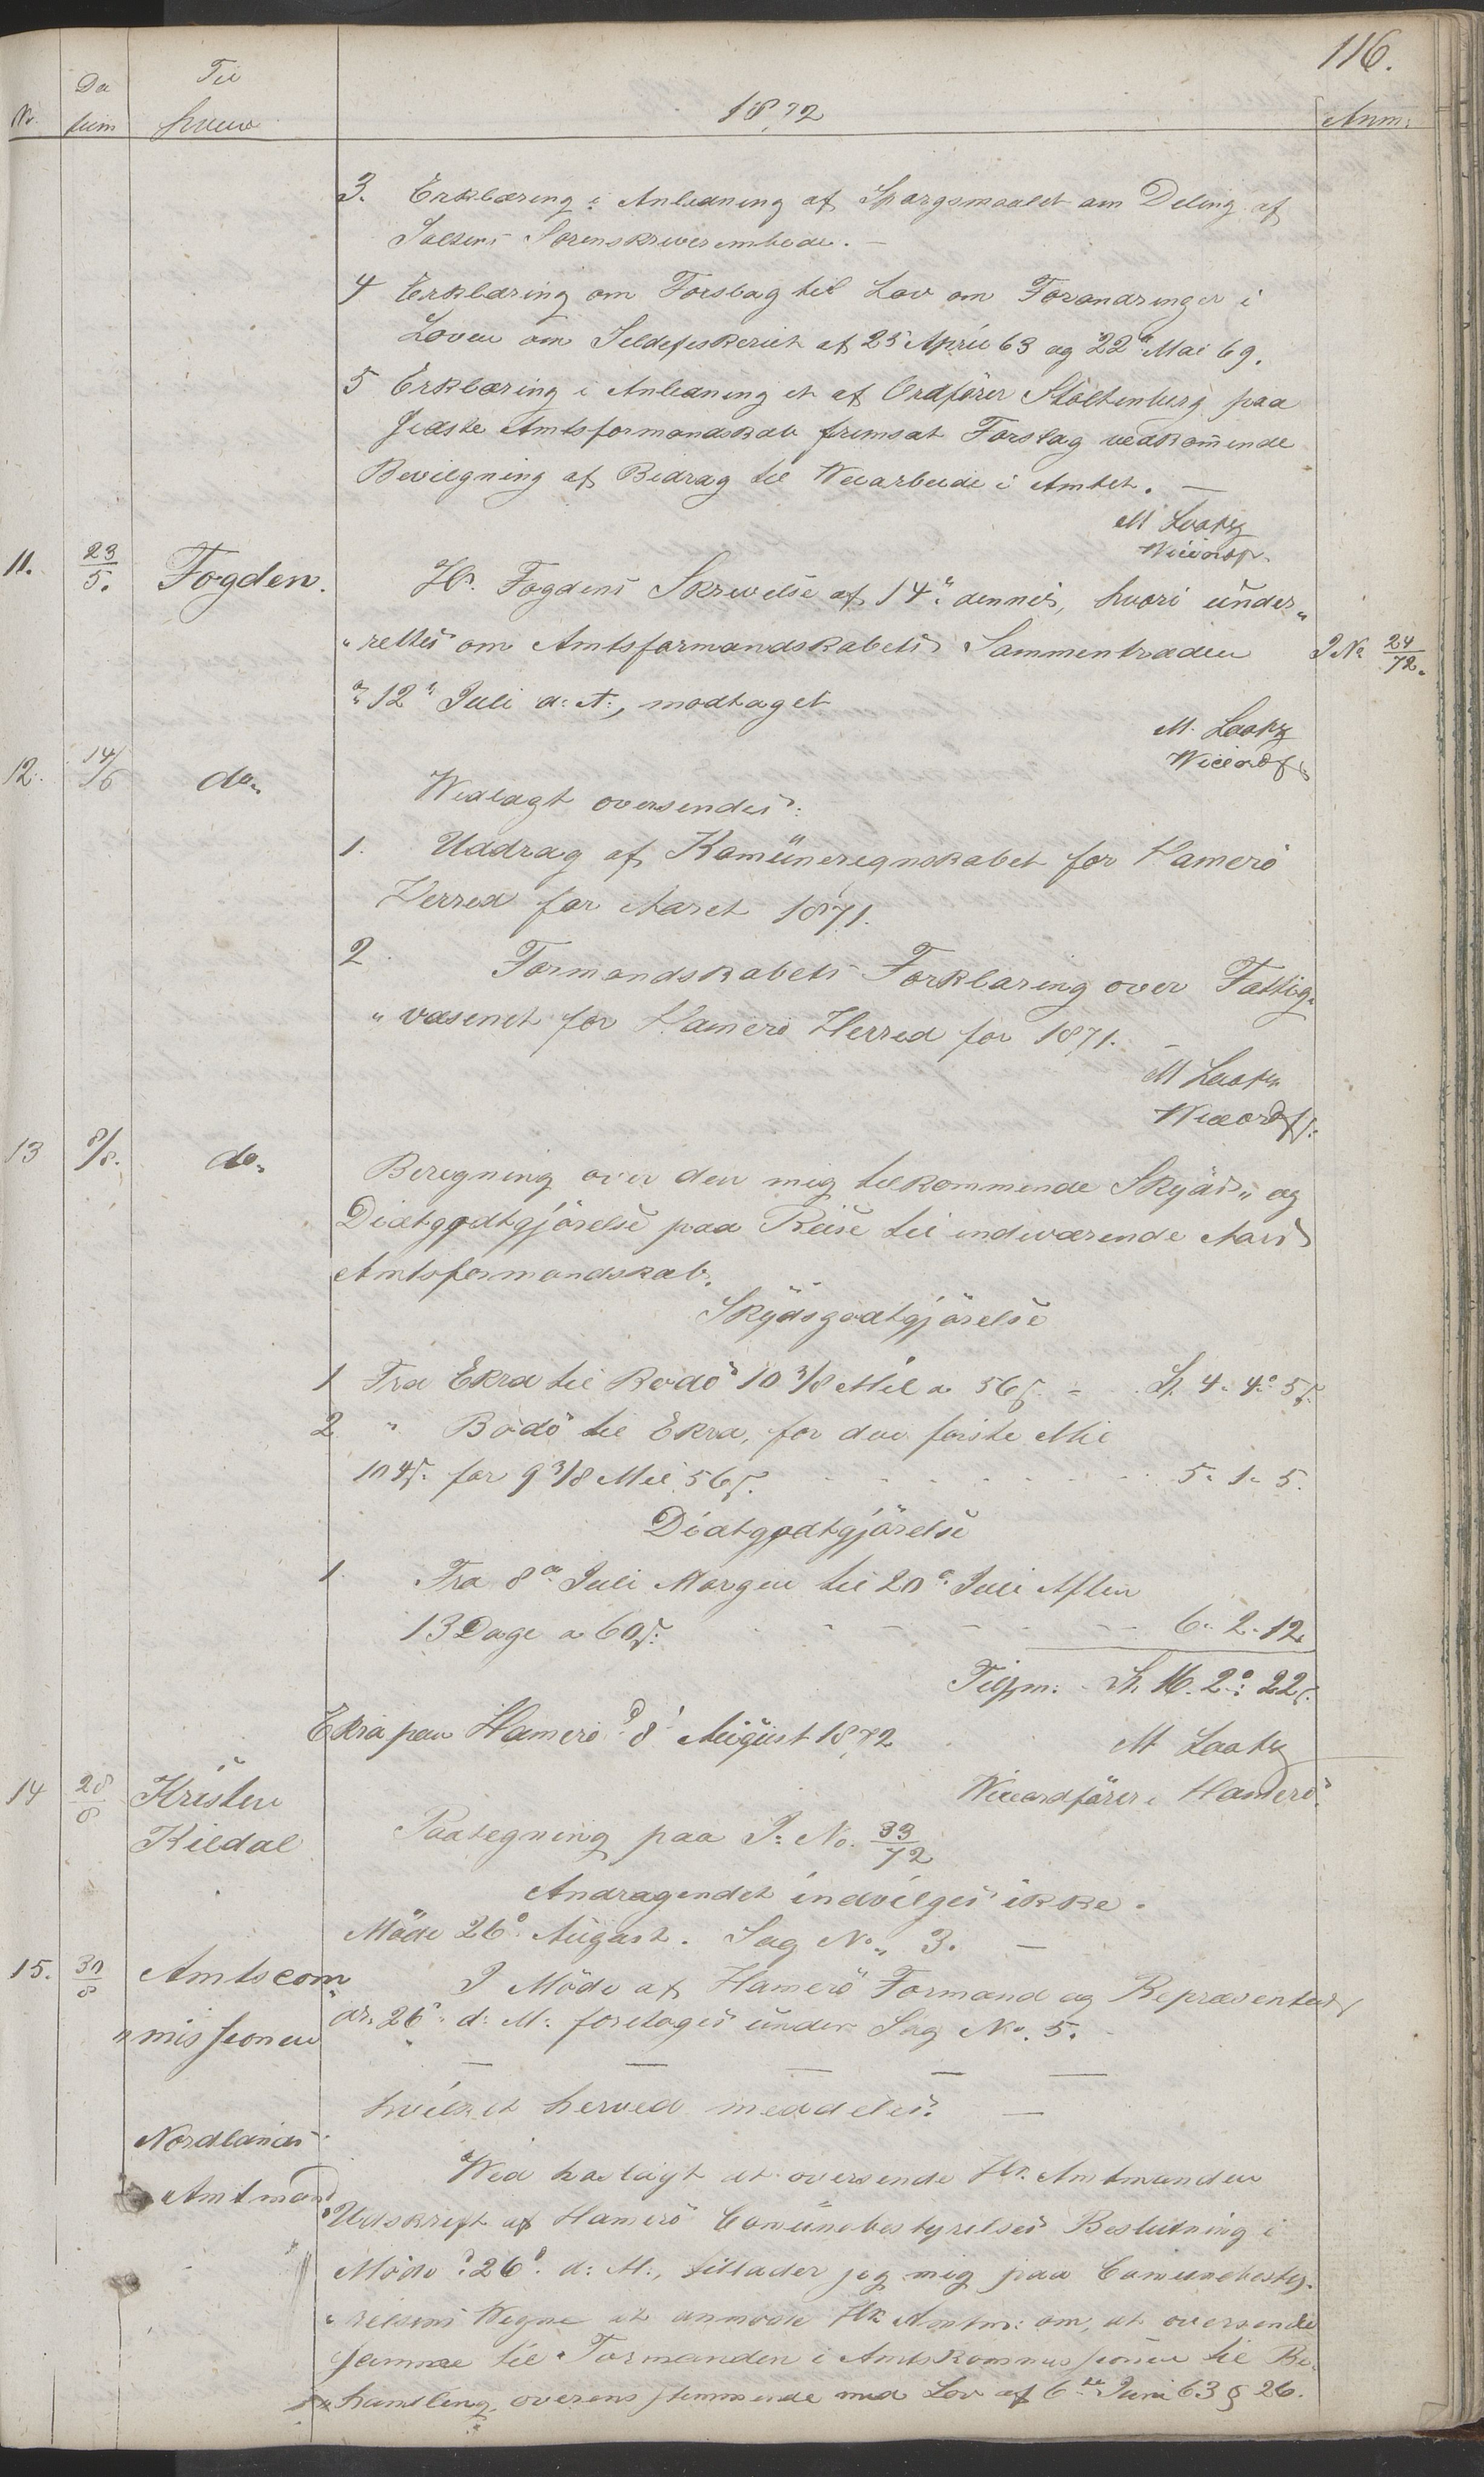 116.
Nr. Da tum Til hvem 1872 Anm:
3. Erklæring i Anledning af Spørgsmaalet om Deling af
Saltens Sorenskriverembede. —
4 Erklæring om Forslag til Lov om Forandringer i
Loven om Sildefiskeriet af 25 April 63 og 22 Mai 69.
5 Erklæring i Anledning et af Ordfører Stoltenberg paa
sidste Amtsformandskab fremsat Forslag vedkommende
Bevilgning af Bidrag til Veiarbeide i Amtet. —
M Laatz
Viceordf.
11. 23/5. Fogden. Hr. Fogdens Skrivelse af 14de dennes, hvori under„
„rettes om Amtsformandskabets Sammentræden J No 24/72.
d. 12te Juli d: A:, modtaget
M. Laatz
Viceordf
12. 14/6 do. Vedlagt oversendes:
1. Uddrag af Komüneregnskabet for Hamerö
Herred for Aaret 1871.
2 Formandskabets Forklaring over Fattig„
„væsenet for Hamerö Herred for 1871. —
M Laatz
Viceordf.
13 8/8. do. Beregning over den mig tilkommende Skyds„ og
Diætgodtgjörelse paa Reise til indeværende Aars
Amtsformandskab.
Skydsgodtgjörelse
1 Fra Ekra til Bodö 10 3/8 Mil a 56 s. - Sp. 4. 4. 5 s.
2 " Bodö til Ekra, for den förste Mil
104 s. for 9 3/8 Mil 56 s. - - - - - - 5. 1. 5.
Diætgodtgjörelse
1. Fra 8de Juli Morgen til 20de Juli Aften
13 Dage a 60 s. - - - - - - 6. 2. 12
Tilsm: Sp. 16. 2: 22 s.
Ekra paa Hamerö d. 8 August 1872
M Laatz
Viceordförer i Hamerö.
14 28/8 Kristen
Kildal
Paategning paa J: No. 33/72
Andragendet indvilges ikke.
Möde 26de August. Sag No. 3. —
15. 30/8 Amtscom„
„missionen
I Möde af Hamerö Formand og Repræsentant
d. 26de d: M: foretoges under Sag No. 5.
— — — — —
hvilket herved meddeles. —
Nordlands
Amtmand
Ved havlagt at oversende Hr. Amtmanden
Udskrift af Hamerö Comünebestyrelses Beslutning i
Möde d. 26de d: M:, tillader jeg mig paa Comünebesty„
„relsens Vegne at anmode Hr Amtm: om, at oversende
samme til Formanden i Amtskommissionen til Be„
„handling overensstemmende med Lov af 6te Juni 63 § 26.